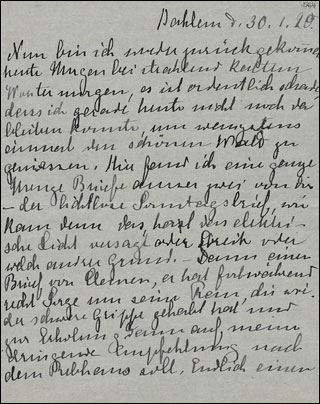 Dahlem d. 30.1.29.
Nun bin ich wieder zurückgekommen
heute Morgen bei strahlend kaltem
Wintermorgen, es ist ordentlich schade
dass ich gerade heute nicht noch da
bleiben konnte, um wenigstens
einmal den schönen Wald zu
geniessen. Hier fand ich eine ganze
Menge Briefe darunter zwei von dir
– der lichtlose Sonntagsbrief, wie
kam denn das, hat das elektri-
sche Licht versagt oder Streik oder
welch andrer Grund. – Dann einen
Brief von Clemen, er hat fortwährend
recht Sorge um seine die wie-
der schwere Grippe gehabt hat und
zur Erholung dann auf meine
dringende Empfehlung nach
dem Rebhaus soll. Endlich einen